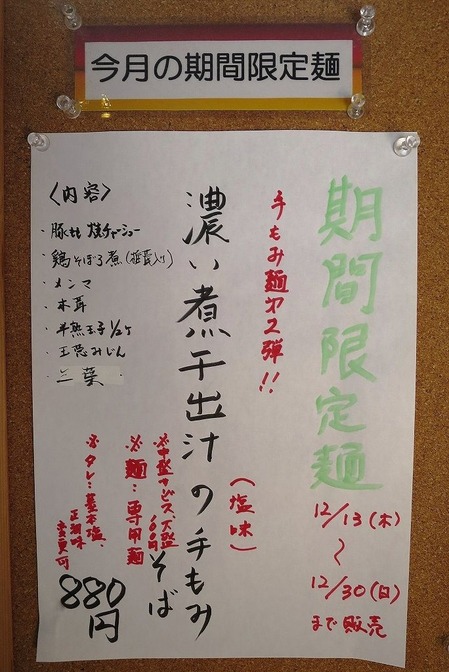 今月の期間限定麺
期間限定麺
12/13(木)
〜
12/30(日)
まで販売
手もみ麺第2弾!!
濃い煮干出汁の手もみそば
(塩味)
※中盛サービス、大盛100円
※麺:専用麺
※タレ:基本塩、
正油味
変更可
880円
〈内容〉
・豚バラ焼チャーシュー
・鶏そぼろ煮(椎茸入り)
・メンマ
・木耳
・半熟玉子1/2ケ
・玉葱みじん
・三葉